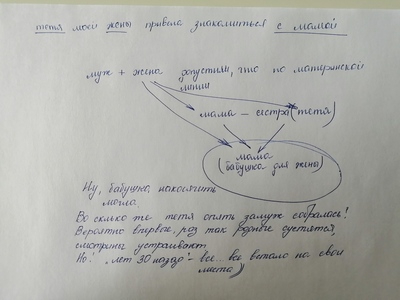 тетя моей жены привела знакомиться с мамой
муж + жена допустим, что по материнской
линии
мама – сестра (тетя)
мама
(бабушка для жены)
Ну, бабушка, накосячить
могла.
Во сколько то тетя опять замуж собралась?
Вероятно впервые, раз так родные суетятся,
смотрины устраивают.
Но! "лет 30 назад" - все... все встало на свои
места)